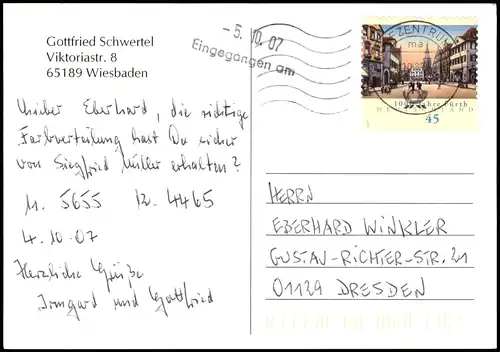 Gottfried Schwertel
Viktoriastr. 8
65189 Wiesbaden
- 5. 10. 07
Eingegangen am
EZENTRUM
ma
1000 Jahre Fürth
DEUTSCHLAND
45
Lieber Eberhard, die richtige
Farbverteilung hast Du sicher
von Siegfried Müller erhalten?
U. 5655 W. 4465
4.10.07
Herzliche Grüße
Irmgard und Gottfried
HERRN
EBERHARD WINKLER
GUSTAV-RICHTER-STR. 21
01129 DRESDEN